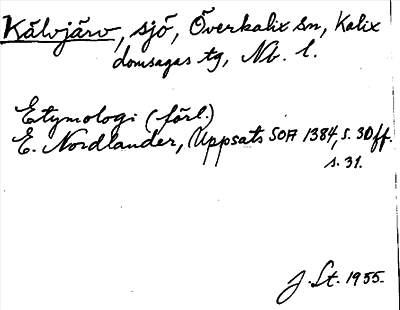 Kälvjärv, sjö, Överkalix sn, Kalix
domsagas tg, Nb. l.
Etymologi (förl.)
E. Nordlander, Uppsats SOA 1384, s. 30 ff.
s. 31.
J. St. 1955.